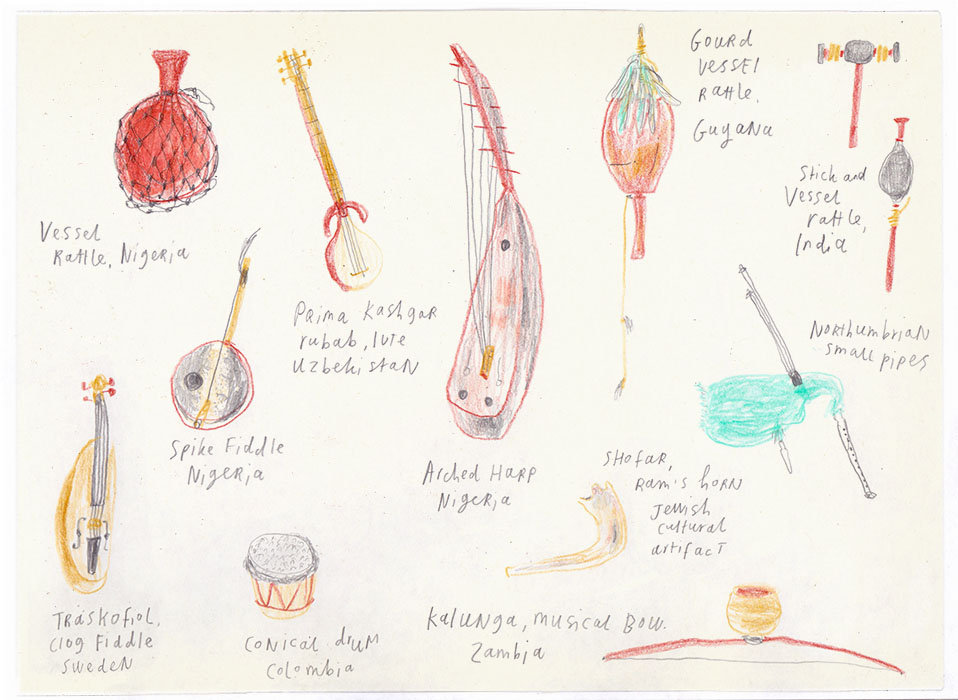 Gourd
Vessel
rattle.
Guyana
Stick and
Vessel
rattle,
India
Vessel
Rattle, Nigeria
Prima Kashgar
rubab, lute
Uzbekistan
Northumbrian
small pipes
Spike Fiddle
Nigeria
Arched Harp
Nigeria
Shofar,
Ram's horn
Jewish
cultural
artifact
Träskofiol,
clog Fiddle
Sweden
Conical drum
Colombia
Kalunga, musical Bow.
Zambia